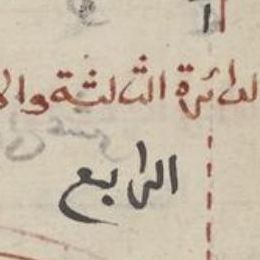 الدائرة الثالثة والا
الرابع